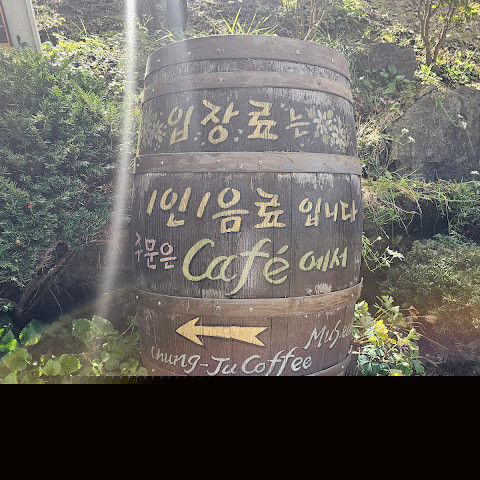 입장료는
1인 1음료 입니다
주문은 Café 에서
Museum
Chung-Ju Coffee